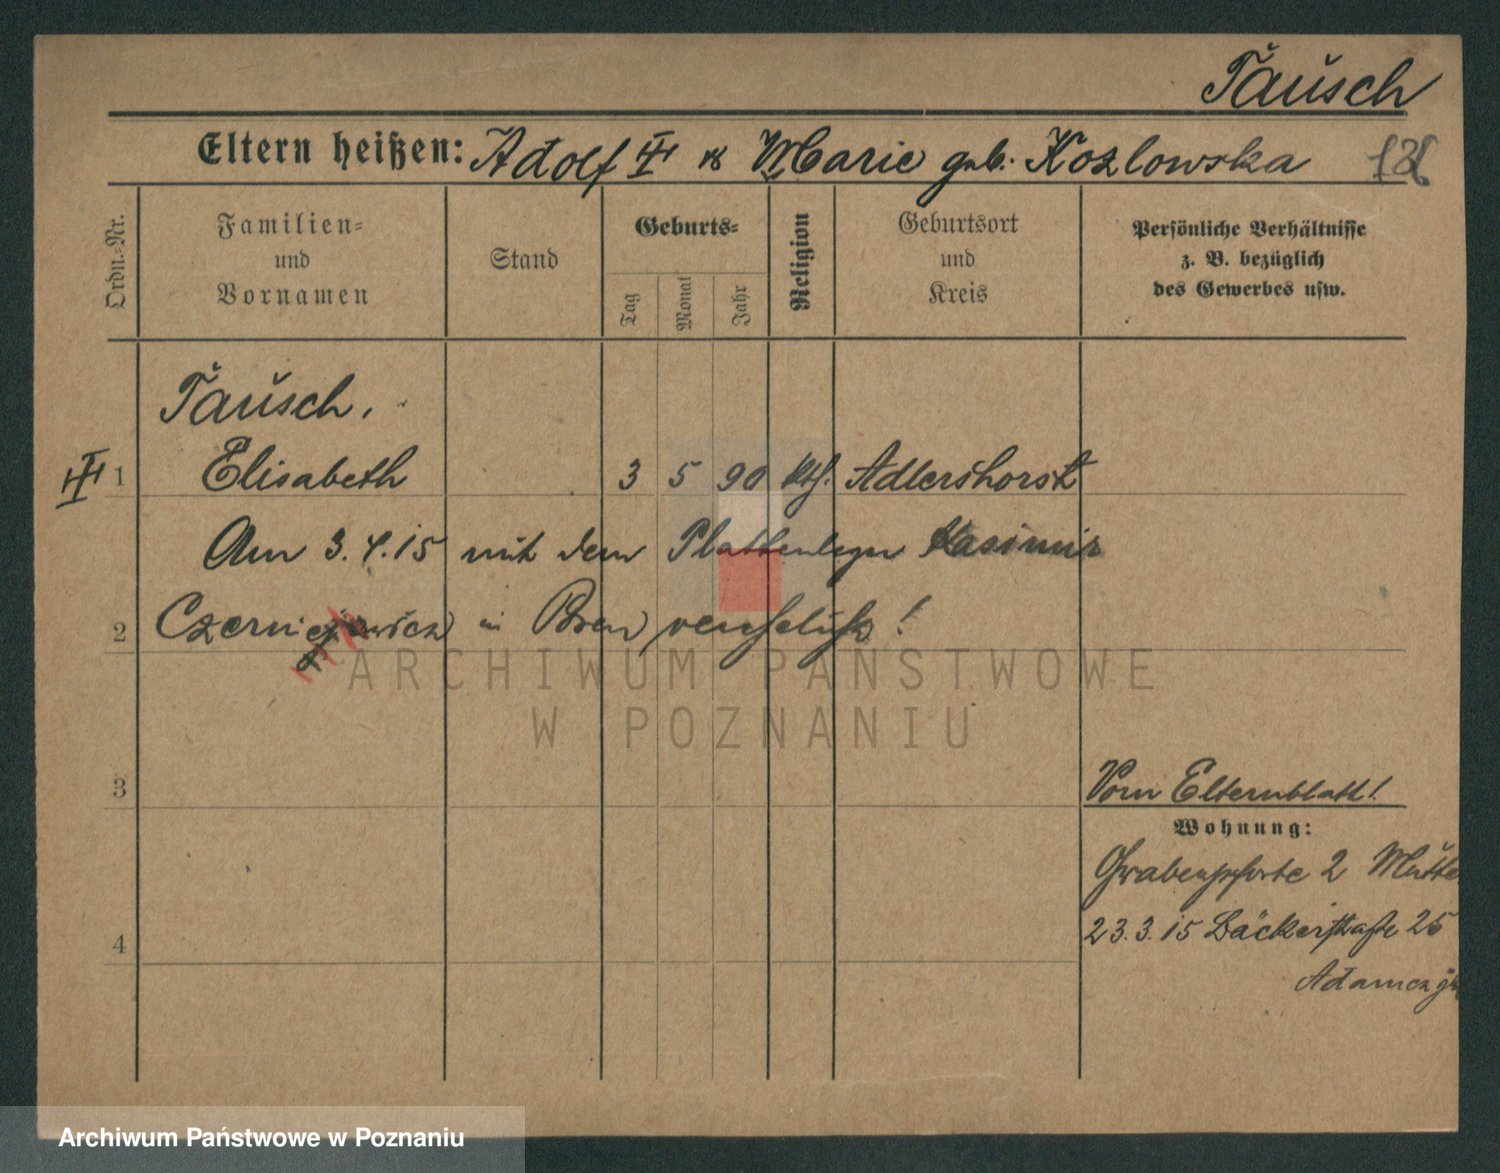 Tausch
Eltern heißen: Adolf ╪ & Marie geb. Kozlowska
Ordn.-Nr.
Familien-
und
Vornamen
Stand
Geburts-
Tag
Monat
Jahr
Religion
Geburtsort
und
Kreis
Persönliche Verhältnisse
z. B. bezüglich
des Gewerbes usw.
Tausch.
1 Elisabeth 3 5 90 kth. Adlershorst
Am 3.4.15 mit dem Plattenleger Kasimir
2 in Posen verehelicht!
ARCHIWUM PAŃSTWOWE
W POZNANIU
3
Vom Elternblatt!
Wohnung:
Grabenpforte 2 Mutte
4
23.3.15 Bäckerstraße 25
Archiwum Państwowe w Poznaniu